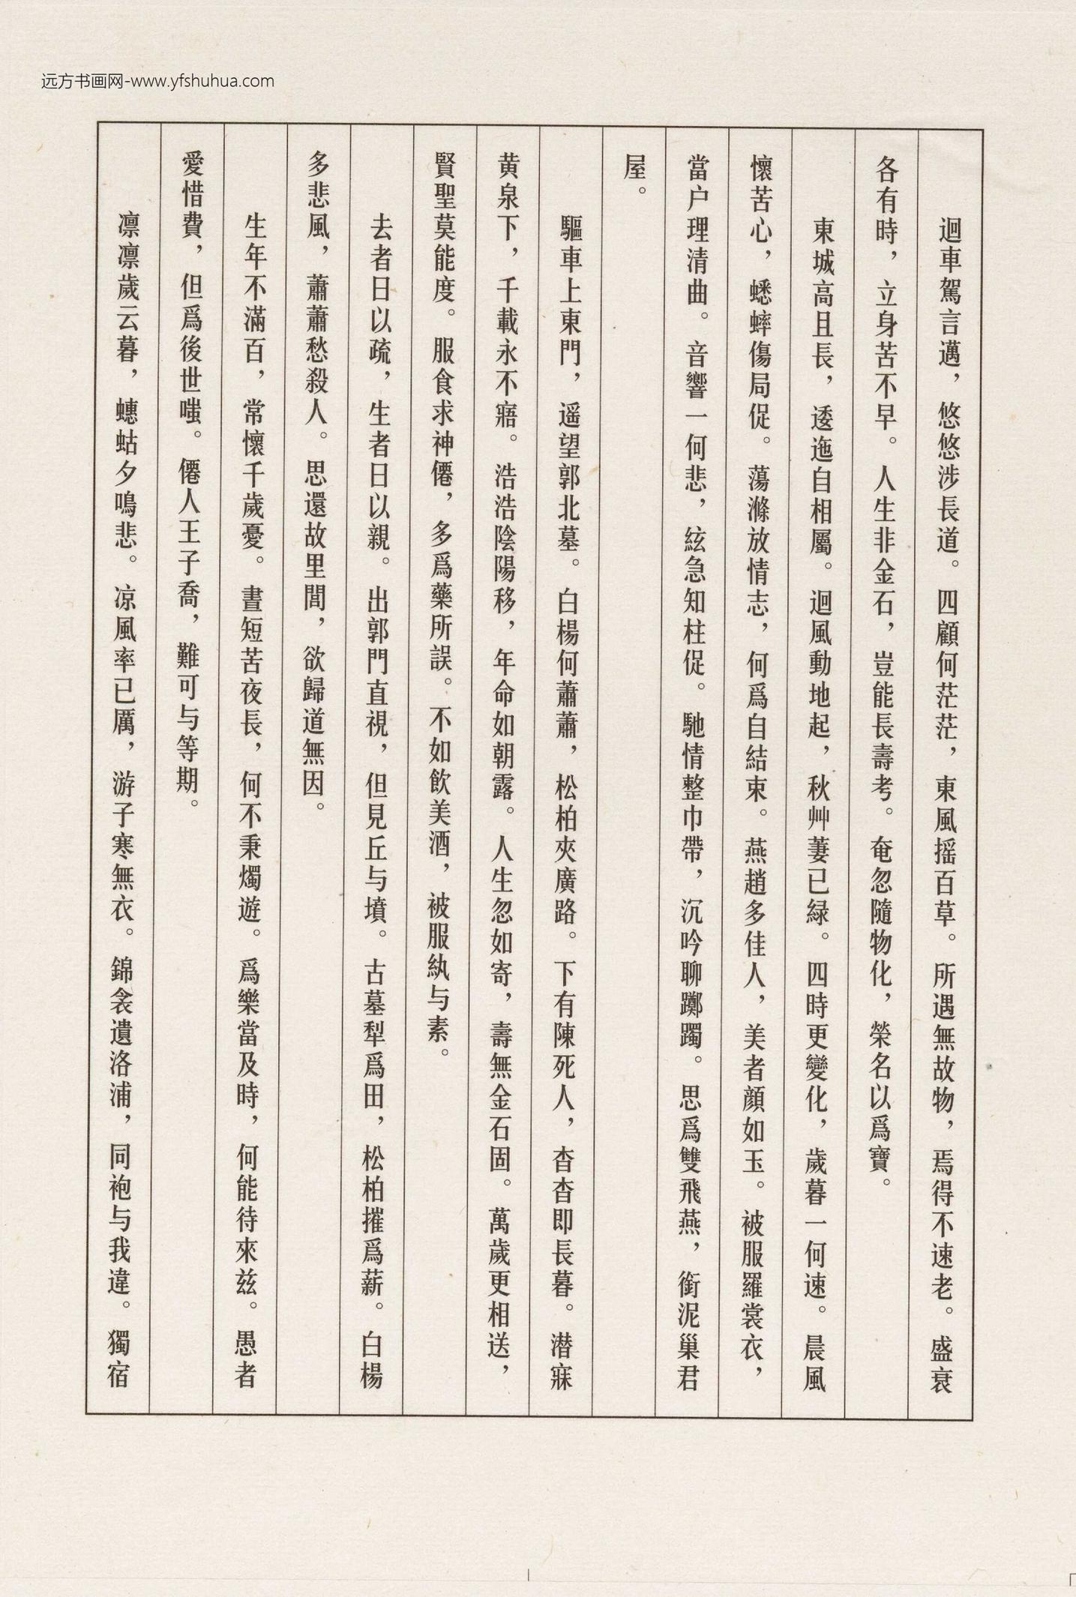 远方书画网-www.yfshuhua.com
迴車駕言邁，悠悠涉長道。四顧何茫茫，東風摇百草。所遇無故物，焉得不速老。盛衰
各有時，立身苦不早。人生非金石，豈能長壽考。奄忽隨物化，榮名以爲寶。
東城高且長，逶迤自相屬。迴風動地起，秋艸萋已緑。四時更變化，歲暮一何速。晨風
懷苦心，蟋蟀傷局促。蕩滌放情志，何爲自結束。燕趙多佳人，美者顔如玉。被服羅裳衣，
當户理清曲。音響一何悲，絃急知柱促。馳情整巾帶，沉吟聊躑躅。思爲雙飛燕，銜泥巢君
屋。
驅車上東門，遥望郭北墓。白楊何蕭蕭，松柏夾廣路。下有陳死人，杳杳即長暮。潜寐
黄泉下，千載永不寤。浩浩陰陽移，年命如朝露。人生忽如寄，壽無金石固。萬歲更相送，
賢聖莫能度。服食求神僊，多爲藥所誤。不如飲美酒，被服紈与素。
去者日以疏，生者日以親。出郭門直視，但見丘与墳。古墓犁爲田，松柏摧爲薪。白楊
多悲風，蕭蕭愁殺人。思還故里閭，欲歸道無因。
生年不滿百，常懷千歲憂。晝短苦夜長，何不秉燭遊。爲樂當及時，何能待來兹。愚者
愛惜費，但爲後世嗤。僊人王子喬，難可与等期。
凛凛歲云暮，螻蛄夕鳴悲。凉風率已厲，游子寒無衣。錦衾遺洛浦，同袍与我違。獨宿